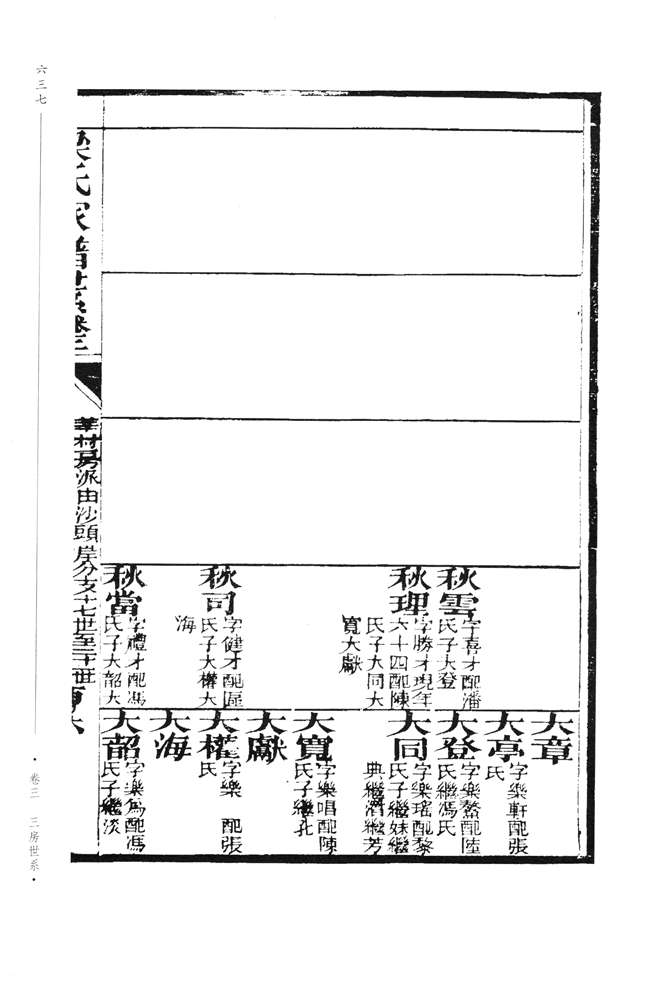 秋雲
字喜才配潘
氏子大登
秋理
字勝才現年
六十四配陳
氏子大同大
寬大獻
秋司
字健才配區
氏子大權大
海
秋當
字禮才配馮
氏子大韶大
大章
大亭
字樂軒配張
氏
大登
字樂鰲配陸
氏繼馮氏
大同
字樂瑤配黎
氏子繼妹繼
典繼繼芳
大寬
字樂唱配陳
氏子繼孔
大獻
大權
字樂 配張
氏
大海
大韶
字樂為配馮
氏子繼淡
梁氏家譜世系卷三
華村房派由沙頭岸分支十七世至二十世
六三七
• 卷三 三房世系 •